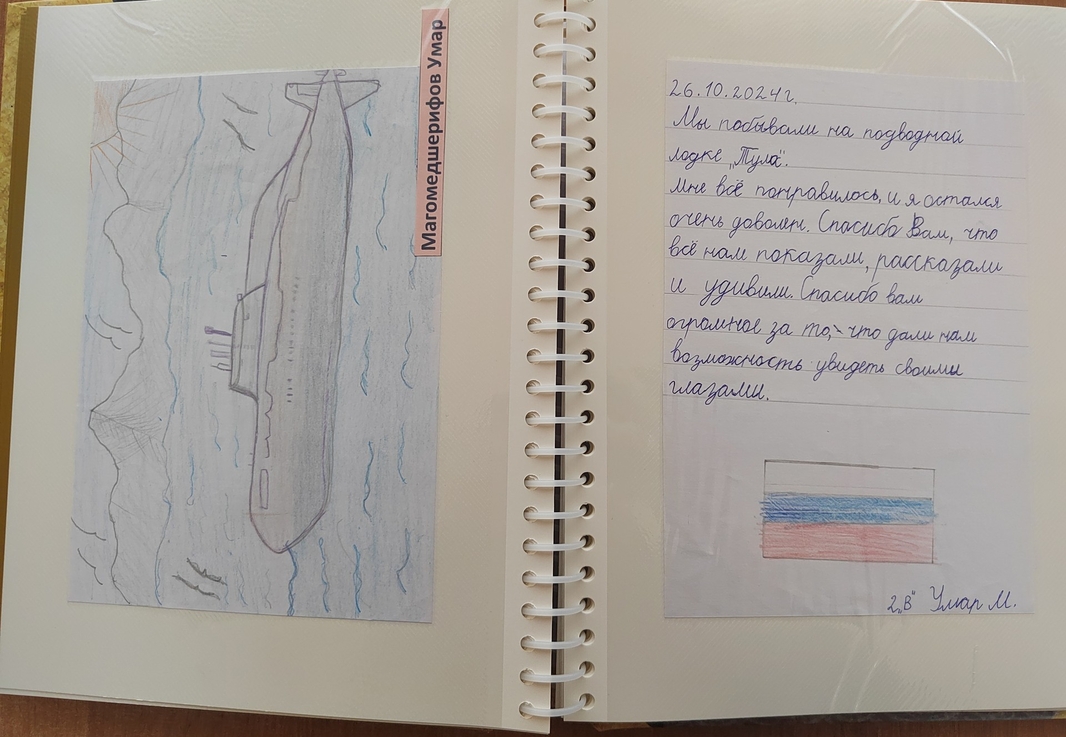 Магомедшерифов Умар
26.10.2024г.
Мы побывали на подводной
лодке „Тула".
Мне всё понравилось, и я остался
очень доволен. Спасибо Вам, что
всё нам показали, рассказали
и удивили. Спасибо вам
огромное за то, что дали нам
возможность увидеть своими
глазами.
2„В" Умар М.